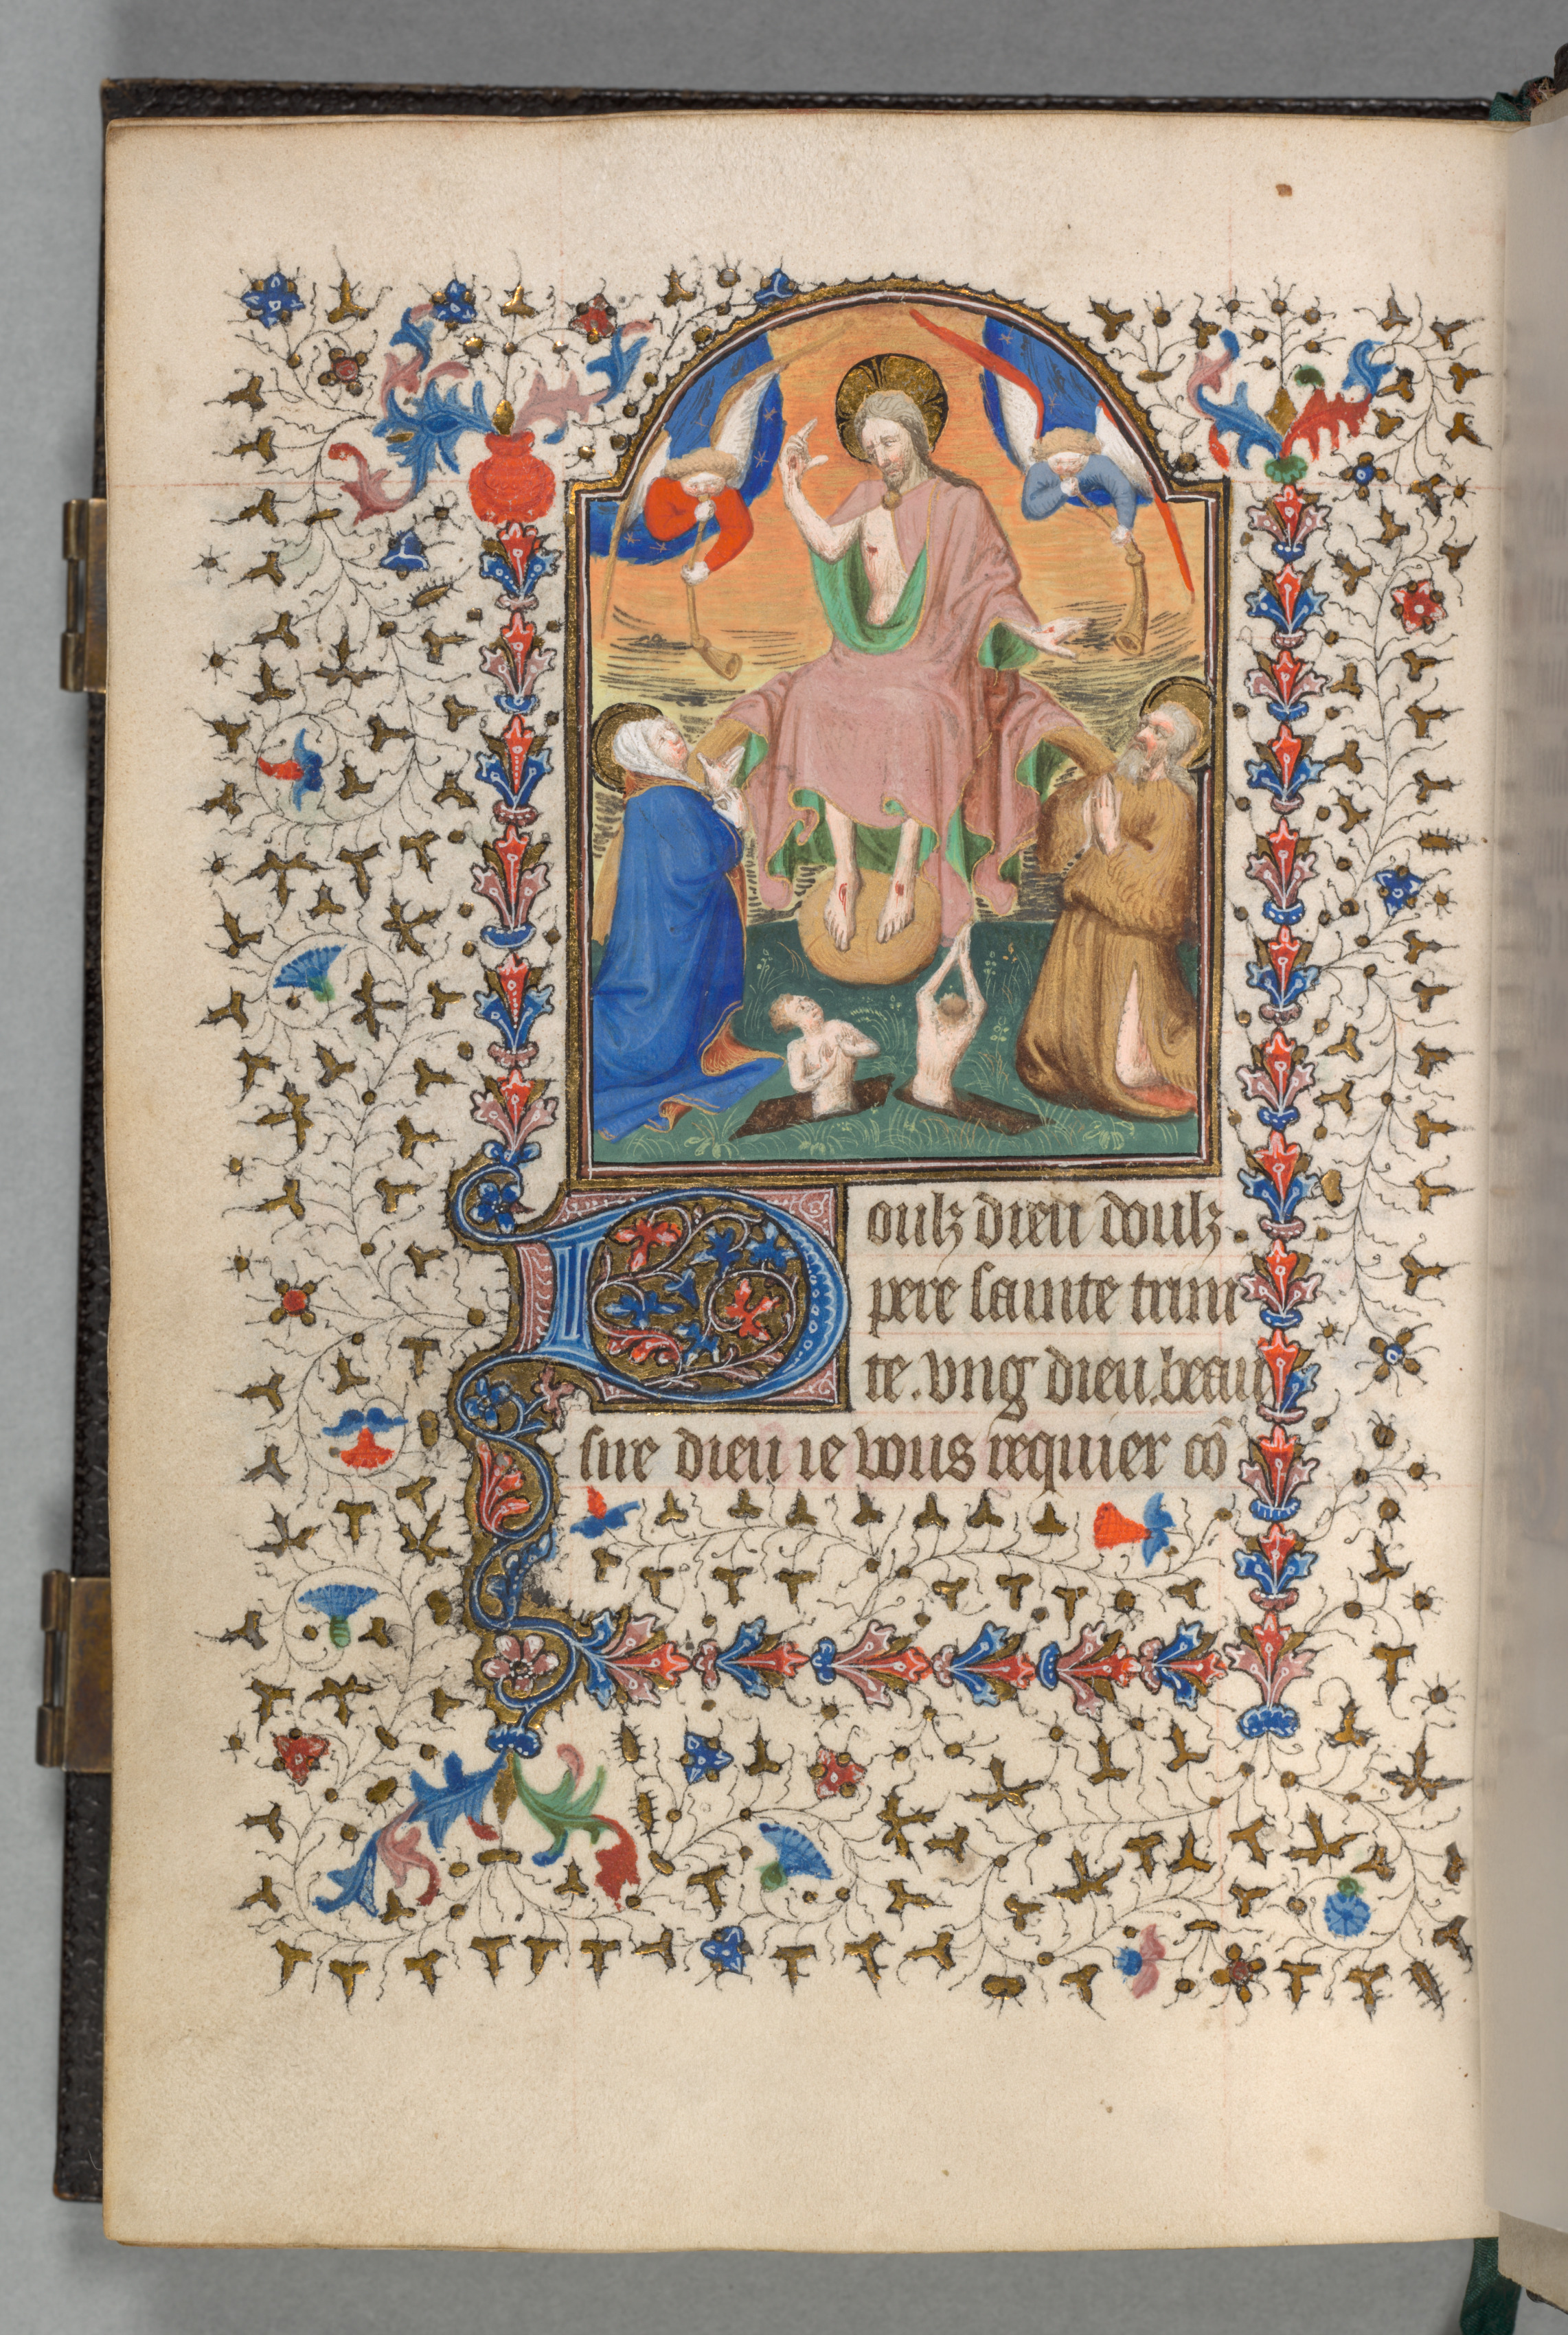 Doulz dieu doulz.
pere sainte trini
te. vng dieu. beau
sire dieu ie vous requier cõ